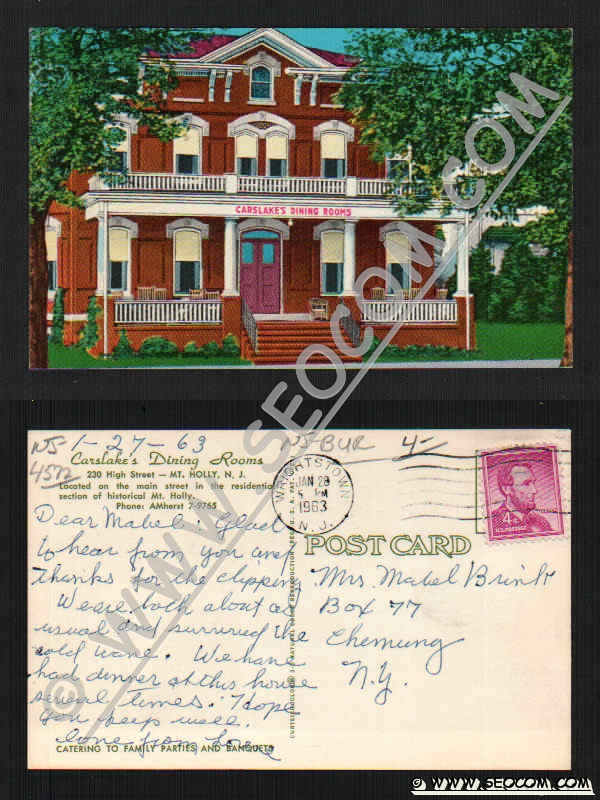 CARSLAKE'S DINING ROOMS
© WWW.SEOCOM.COM
NJ 1-27-63 NJ-BUR 4-
4572
Carslake's Dining Rooms
230 High Street — MT. HOLLY, N. J.
Located on the main street in the residential
section of historical Mt. Holly.
Phone: AMherst 7-9765
WRIGHTSTOWN
JAN 28
5 PM
1963
N. J.
4¢
U.S. POSTAGE
POST CARD
Dear Mabel: Glad
to hear from you and
thanks for the clipping
We are both about as
usual and survived the
cold wave. We have
had dinner at this house
several times. Hope
you keep well.
Love from
CATERING TO FAMILY PARTIES AND BANQUETS
Mrs. Mabel Brink
Box 77
Chemung
N.Y.
© WWW.SEOCOM.COM
© WWW.SEOCOM.COM